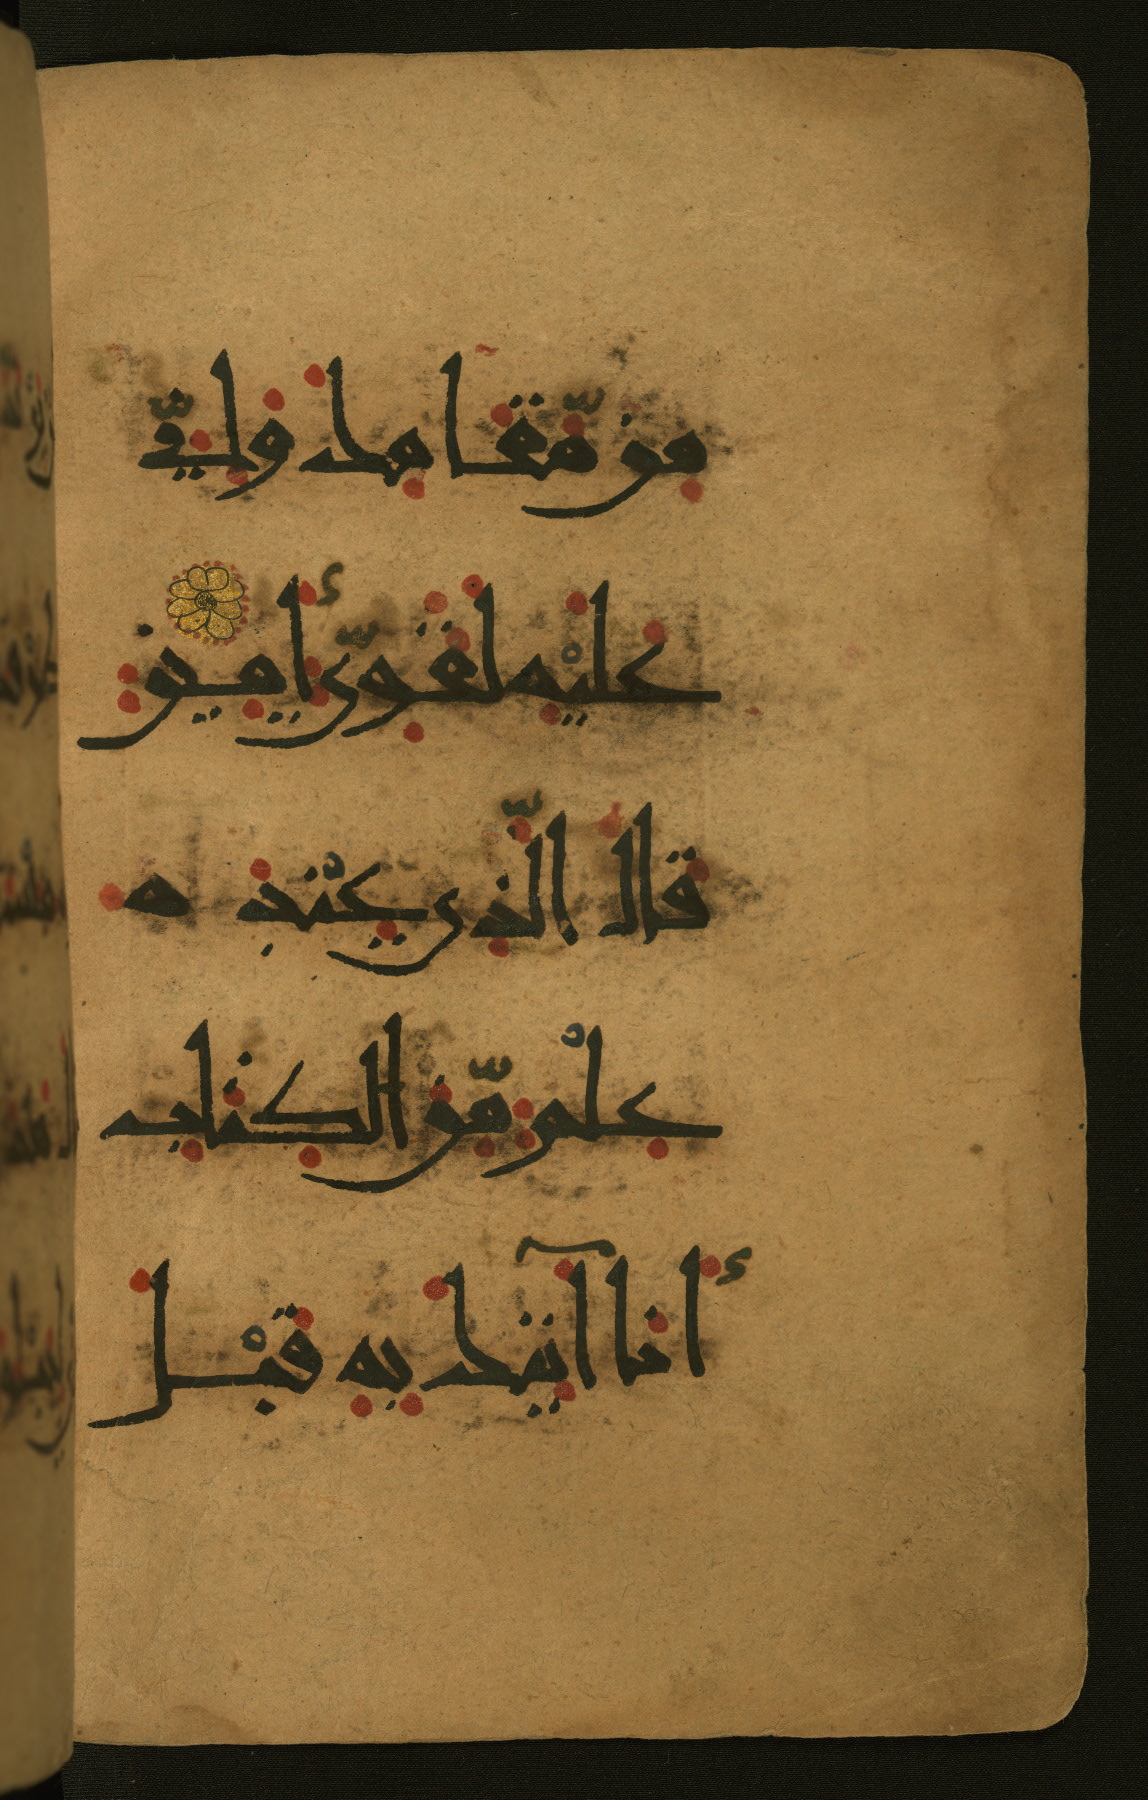 من مّقامك وإنّي
عليه لقويّ أمين
قال الّذي عنده
علم مّن الكتاب
أنا آتيك به قبل